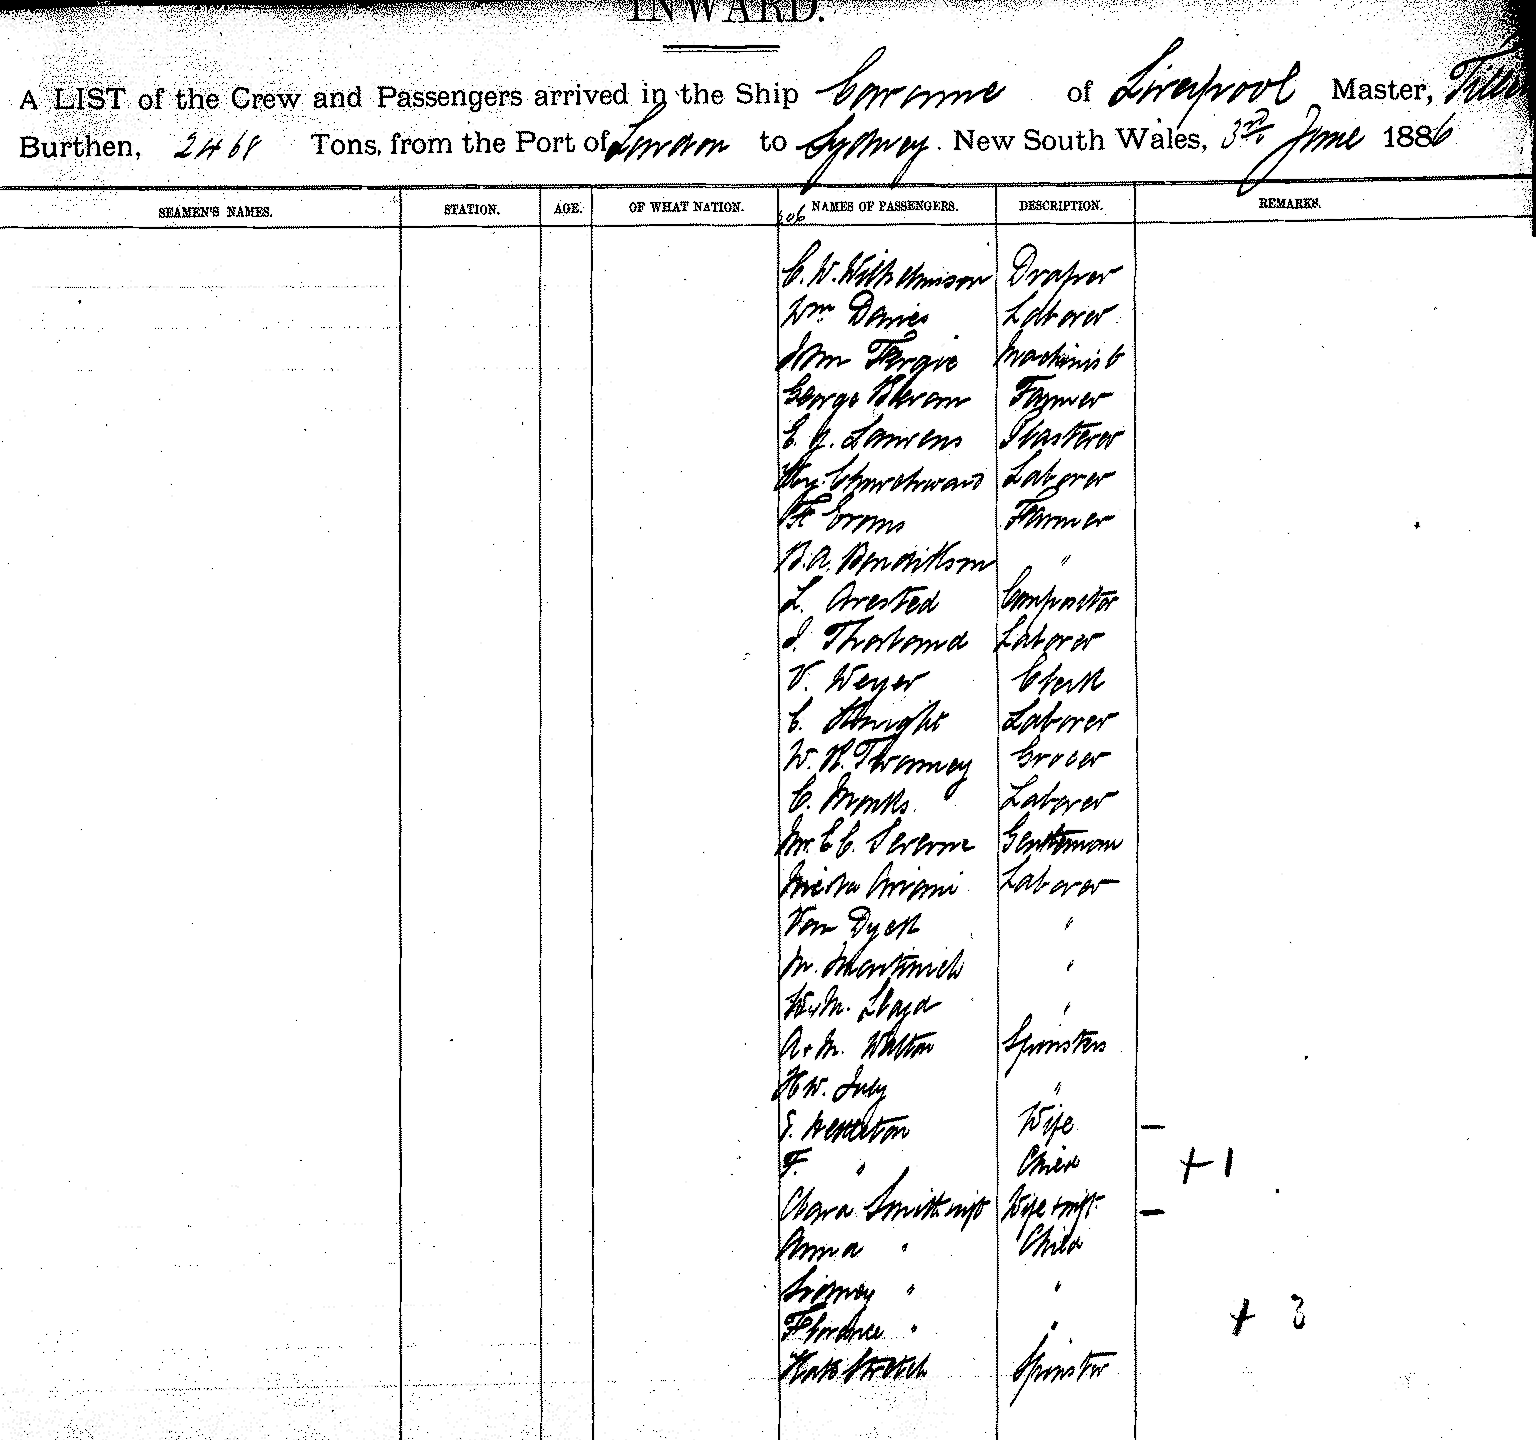 INWARD.
A LIST of the Crew and Passengers arrived in the Ship of Liverpool Master,
Burthen, 2468 Tons, from the Port of London to Sydney. New South Wales, 3rd June 1886
SEAMEN'S NAMES. STATION. AGE. OF WHAT NATION. NAMES OF PASSENGERS. DESCRIPTION. REMARKS.
C. W. Wilhelmson Draper
Wm Davies Laborer
John Fergie Machinist
George Farmer
E. Laurens Plasterer
Hy. Churchward Laborer
F Evans Farmer
B. A. Bendiktson "
L. Arested Compositor
J. Laborer
V. Weyer Clerk
C. Knight Laborer
W. H. Twomey Grocer
C. Monks. Laborer
Mr. E C. Severne Gentleman
Laborer
Van Dyck "
M. Martinich "
M. Lloyd "
A & M. Walton Spinsters
H W. July "
E. Nettleton Wife —
F. " Child +1
Clara Smith Wife —
Anna " Child
Sidney " "
Florence " " + 3
Kate Stretch Spinster